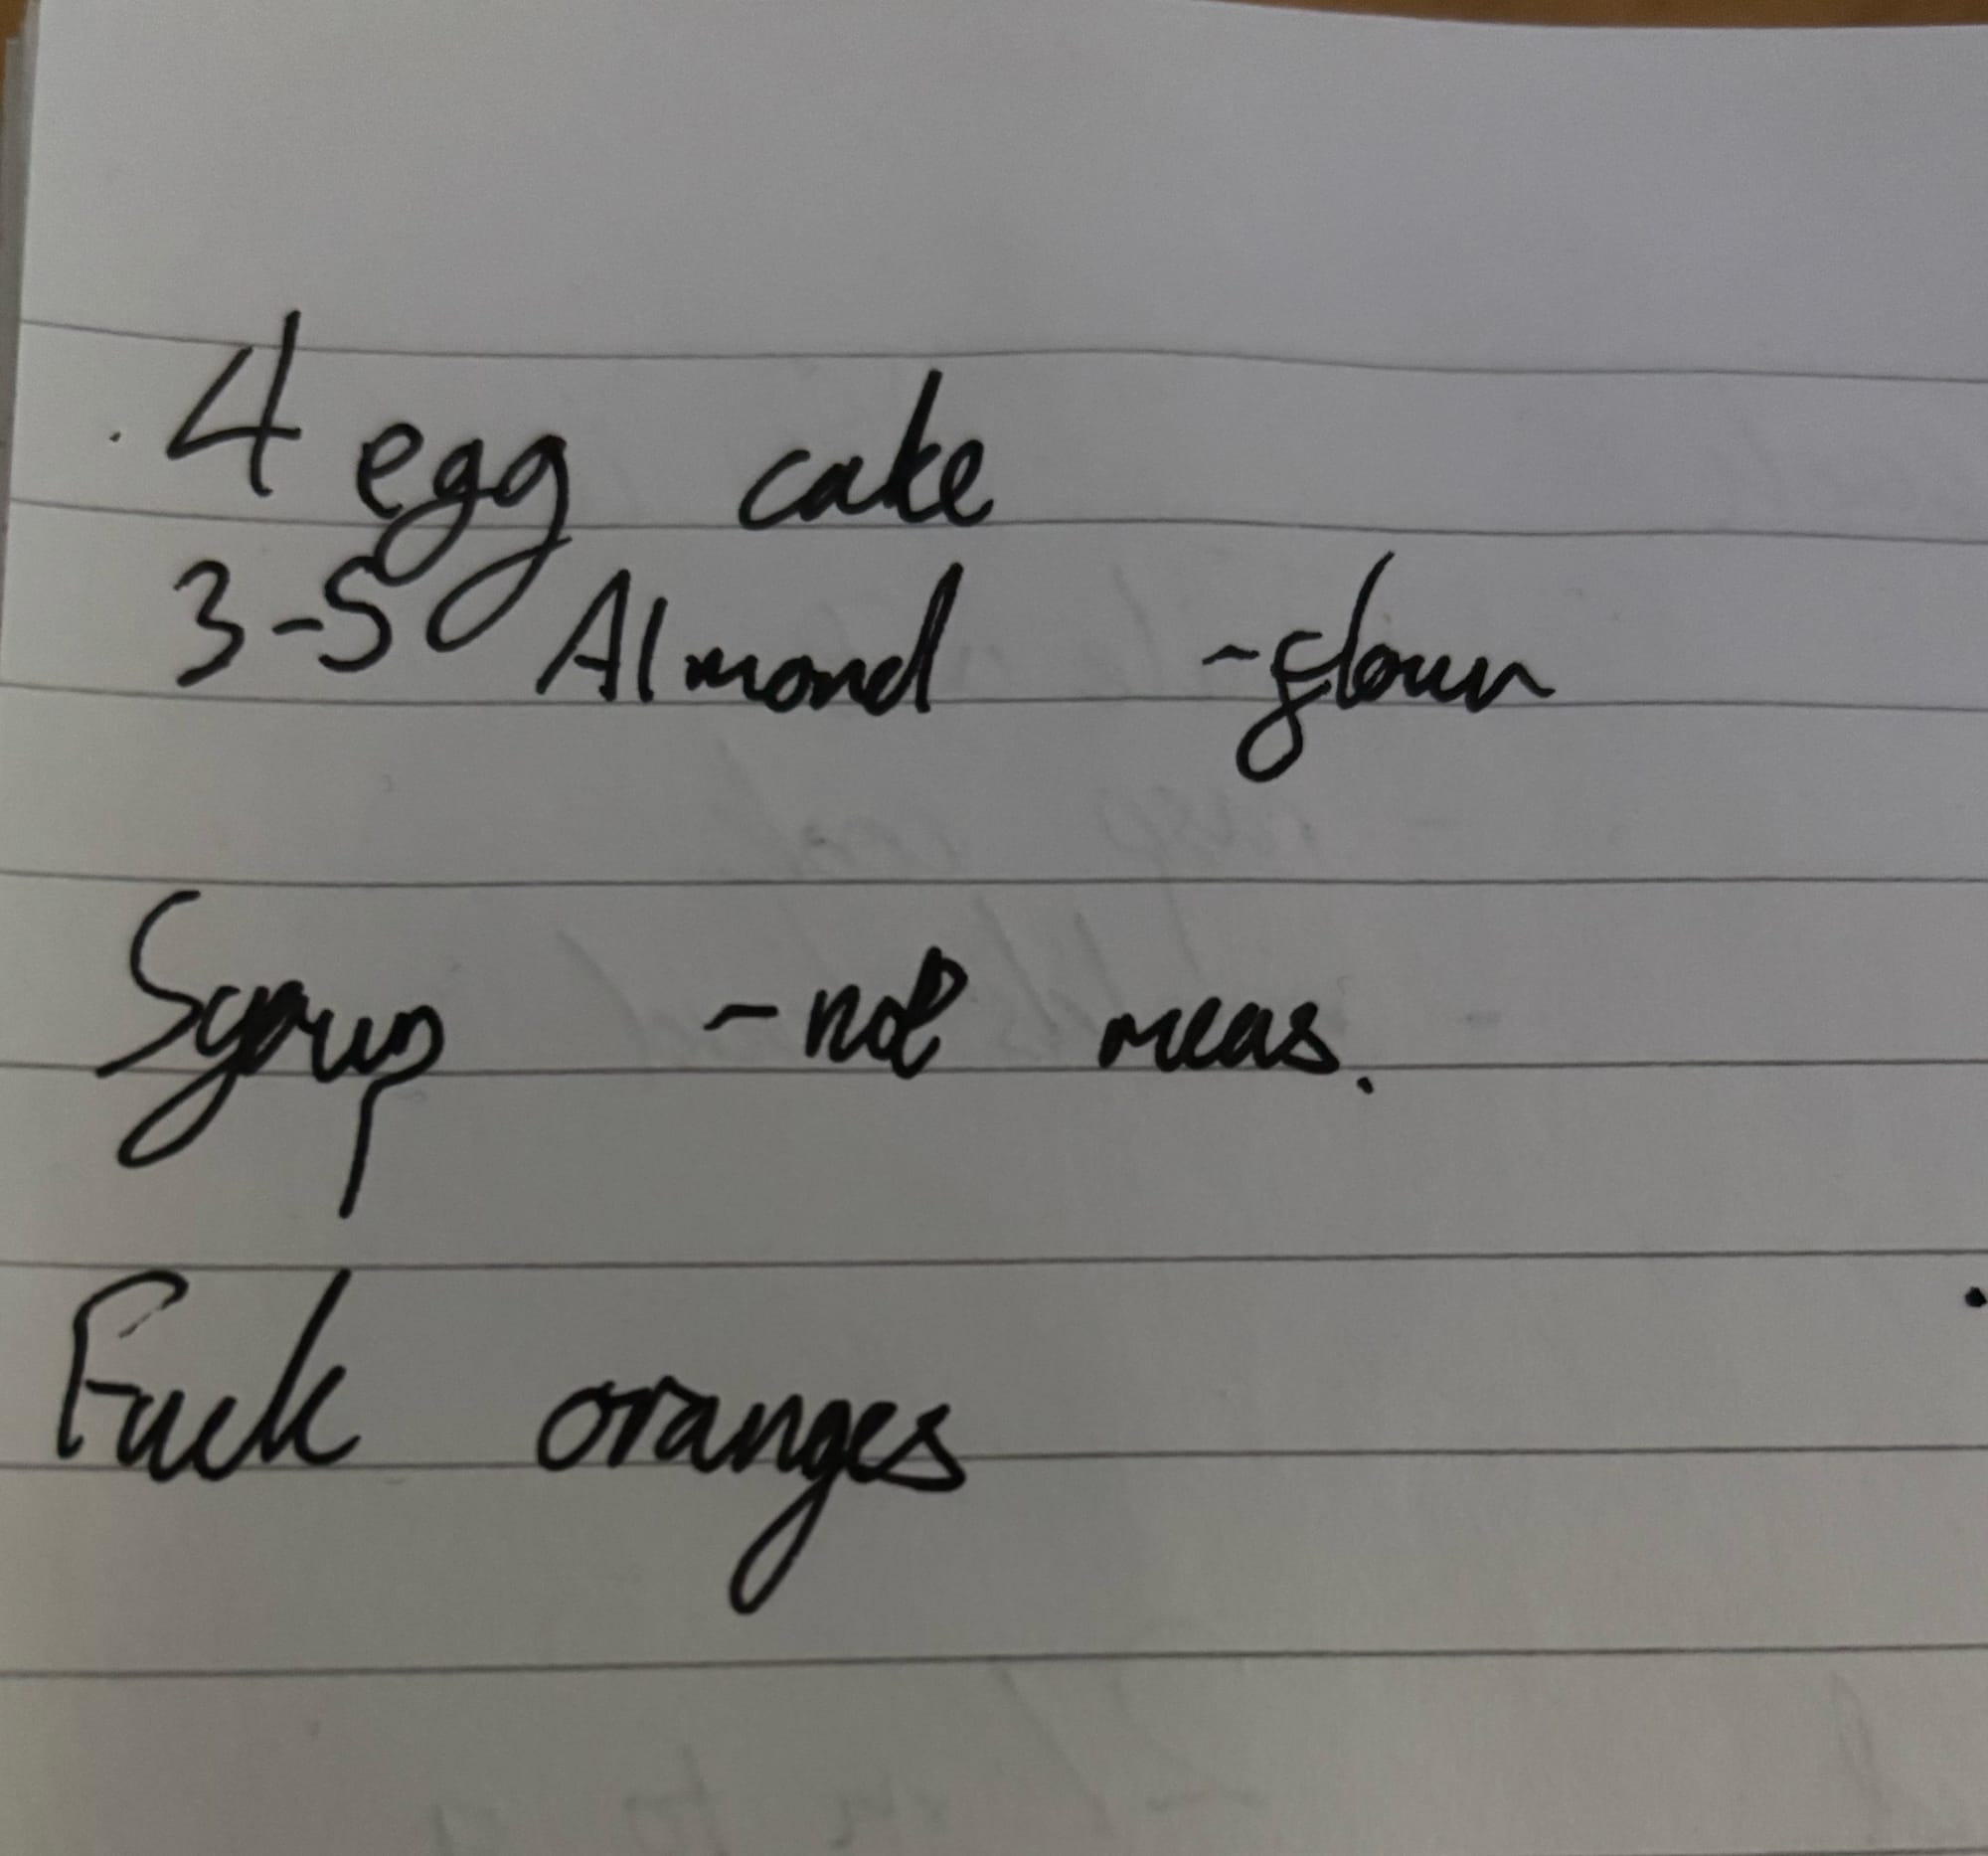 4 egg cake
3-5 Almond -flour
Syrup -not meas.
Fuck oranges